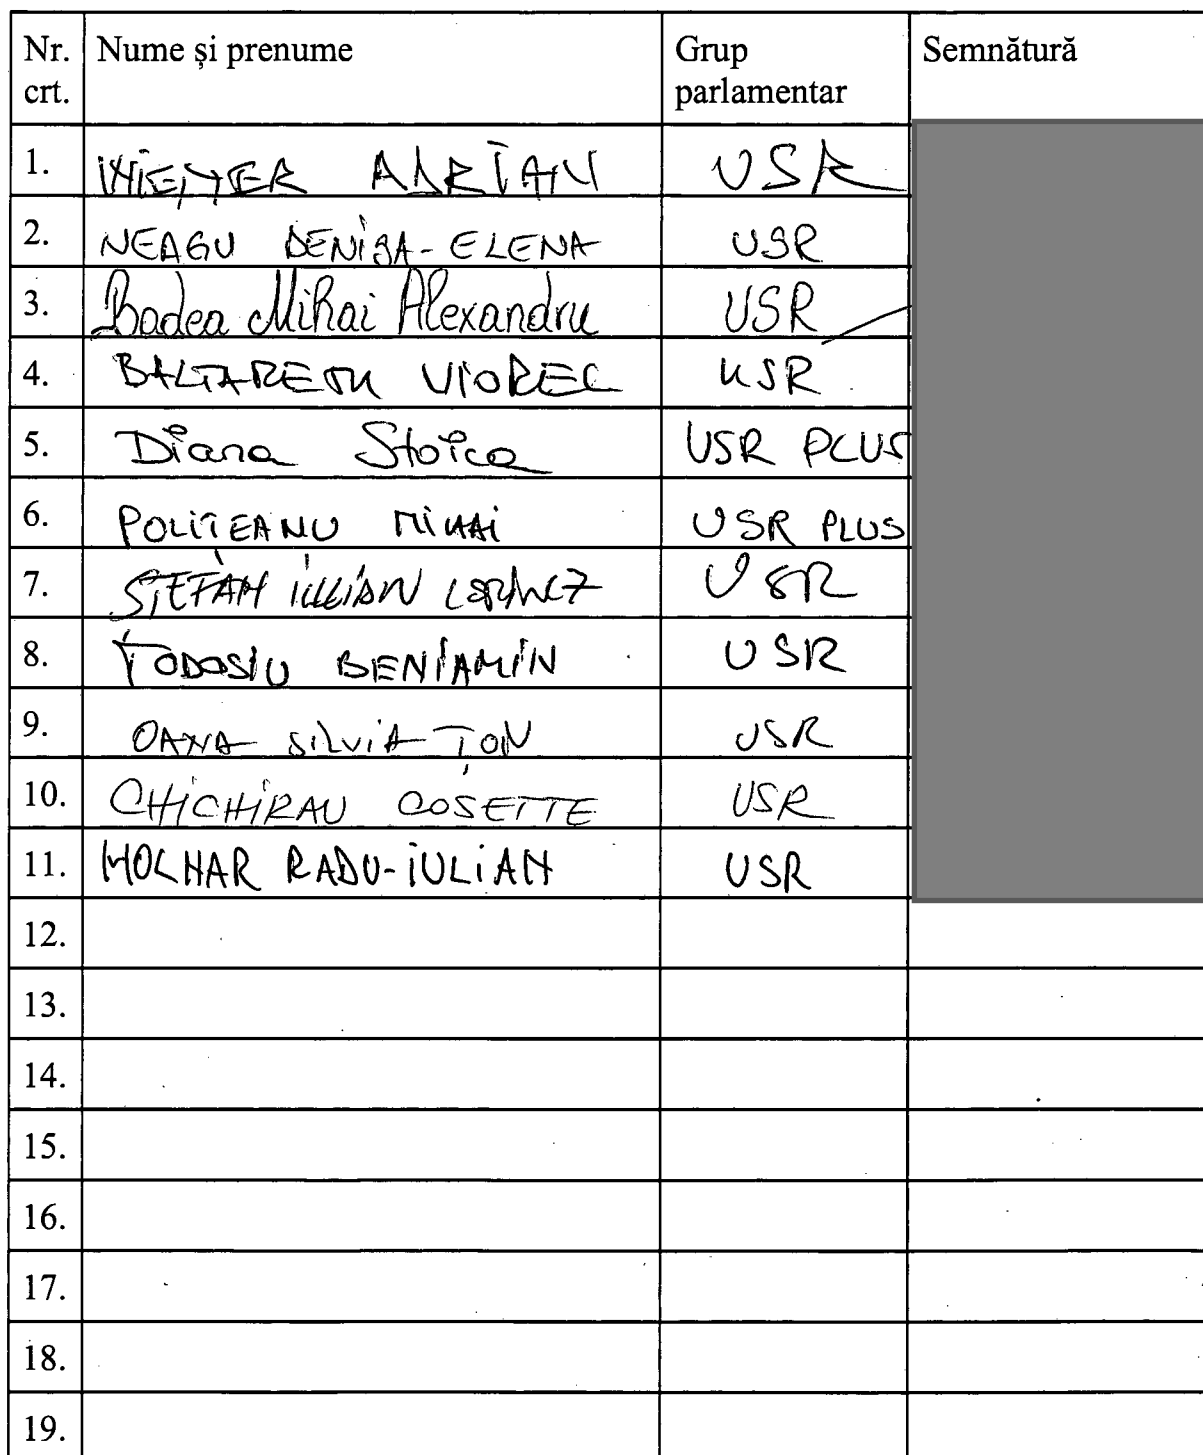 Nr. crt. Nume și prenume Grup parlamentar Semnătură
1. WIENER ADRIAN USR
2. NEAGU DENISA-ELENA USR
3. Badea Mihai Alexandru USR
4. BALTARETU VIOREL USR
5. Diana Stoica USR PLUS
6. POLITEANU MIHAI USR PLUS
7. ȘTEFAN IULIAN LORINCZ USR
8. TODOSIU BENIAMIN USR
9. OANA SILVIA ȚOIU USR
10. CHICHIRAU COSETTE USR
11. MOLNAR RADU-IULIAN USR
12.
13.
14.
15.
16.
17.
18.
19.